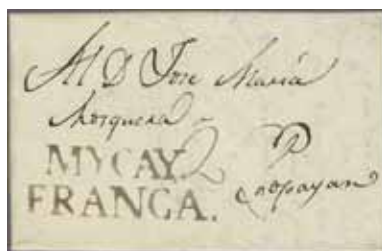 Al D Jose María
Mosquera
MYCAY
FRANCA.
Popayan